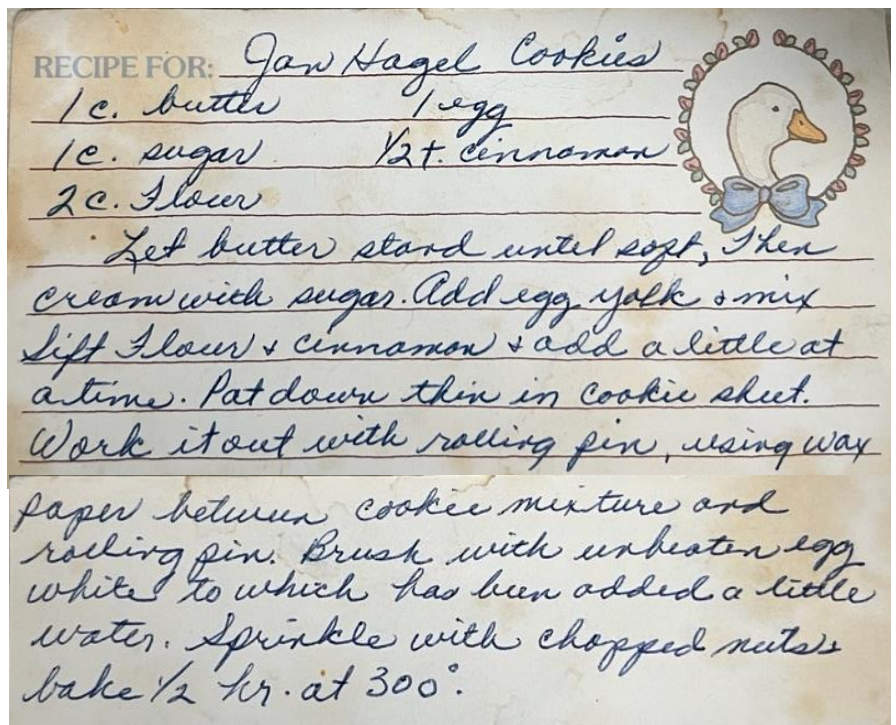 RECIPE FOR: Jan Hagel Cookies
1 c. butter 1 egg
1 c. sugar 1/2 t. cinnamon
2 c. Flour
Let butter stand until soft, Then
cream with sugar. Add egg yolk & mix
Sift Flour & cinnamon & add a little at
a time. Pat down thin in cookie sheet.
Work it out with rolling pin, using wax
paper between cookie mixture and
rolling pin. Brush with unbeaten egg
white to which has been added a little
water. Sprinkle with chopped nuts &
bake 1/2 hr. at 300°.